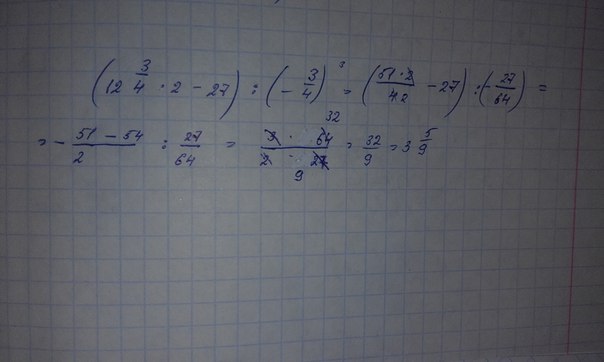 (12 3/4 · 2 − 27) : (− 3/4)³ = (51·2/42 − 27) : (− 27/64) =
= − 51 − 54/2 : 27/64 = 3 · 64 32/2 · 27 9 = 32/9 = 3 5/9